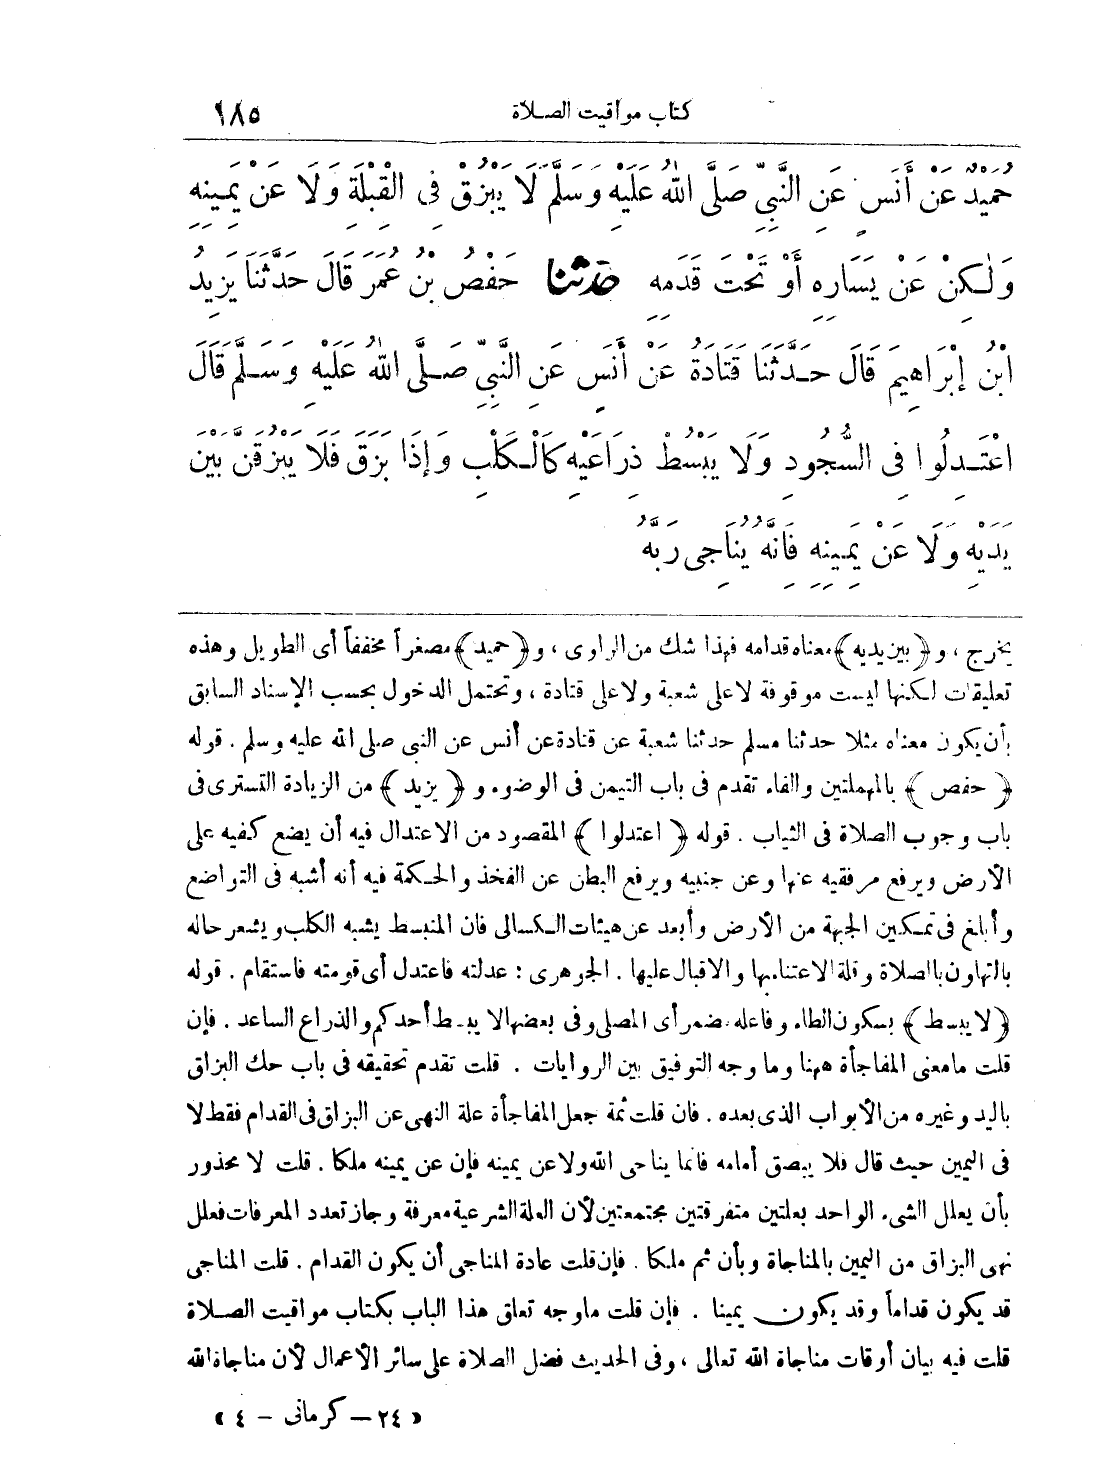 كتاب مواقيت الصلاة ١٨٥
حُمَيْدٌ عَنْ أَنَسٍ عَنِ النَّبِيِّ صَلَّى اللهُ عَلَيْهِ وَسَلَّمَ لَا يَبْزُقْ فِى الْقِبْلَةِ وَلَا عَنْ يَمِينِهِ
وَلٰكِنْ عَنْ يَسَارِهِ أَوْ تَحْتَ قَدَمِهِ حدثنا حَفْصُ بْنُ عُمَرَ قَالَ حَدَّثَنَا يَزِيدُ
ابْنُ إِبْرَاهِيمَ قَالَ حَدَّثَنَا قَتَادَةُ عَنْ أَنَسٍ عَنِ النَّبِيِّ صَلَّى اللهُ عَلَيْهِ وَسَلَّمَ قَالَ
اعْتَدِلُوا فِى السُّجُودِ وَلَا يَبْسُطْ ذِرَاعَيْهِ كَالْكَلْبِ وَإِذَا بَزَقَ فَلَا يَبْزُقَنَّ بَيْنَ
يَدَيْهِ وَلَا عَنْ يَمِينِهِ فَانَّهُ يُنَاجِى رَبَّهُ
يخرج ، و ﴿ بين يديه ﴾ معناه قدامه فهذا شك من الراوى ، و ﴿ حميد ﴾ مصغراً مخففاً أى الطويل وهذه
تعليقات لكنها ليست موقوفة لا على شعبة ولا على قتادة ، وتحتمل الدخول بحسب الإسناد السابق
بأن يكون معناه مثلا حدثنا مسلم حدثنا شعبة عن قتادة عن أنس عن النبى صلى الله عليه وسلم . قوله
﴿ حفص ﴾ بالمهملتين والفاء تقدم فى باب التيمن فى الوضوء و ﴿ يزيد ﴾ من الزيادة التسترى فى
باب وجوب الصلاة فى الثياب . قوله ﴿ اعتدلوا ﴾ المقصود من الاعتدال فيه أن يضع كفيه على
الأرض ويرفع مرفقيه عنها وعن جنبيه ويرفع البطن عن الفخذ والحكمة فيه أنه أشبه فى التواضع
وأبلغ فى تمكين الجبهة من الأرض وأبعد عن هيئات الكسالى فان المنبسط يشبه الكلب ويشعر حاله
بالتهاون بالصلاة وقلة الاعتناء بها والاقبال عليها . الجوهرى : عدلته فاعتدل أى قومته فاستقام . قوله
﴿ لا يبسط ﴾ بسكون الطاء وفاعله مضمر أى المصلى وفى بعضها لا يبسط أحدكم والذراع الساعد . فإن
قلت ما معنى المفاجأة ههنا وما وجه التوفيق بين الروايات . قلت تقدم تحقيقه فى باب حك البزاق
باليد وغيره من الأبواب الذى بعده . فان قلت ثمة جعل المفاجأة علة النهى عن البزاق فى القدام فقط لا
فى اليمين حيث قال فلا يبصق أمامه فانما يناجى الله ولا عن يمينه فإن عن يمينه ملكا . قلت لا محذور
بأن يعلل الشىء الواحد بعلتين متفرقتين مجتمعتين لأن العلة الشرعية معرفة وجاز تعدد المعرفات فعلل
نهى البزاق من اليمين بالمناجاة وبأن ثم ملكا . فإن قلت عادة المناجى أن يكون القدام . قلت المناجى
قد يكون قداماً وقد يكون يمينا . فإن قلت ما وجه تعلق هذا الباب بكتاب مواقيت الصلاة
قلت فيه بيان أوقات مناجاة الله تعالى ، وفى الحديث فضل الصلاة على سائر الأعمال لأن مناجاة الله
« ٢٤ – كرمانى – ٤ »